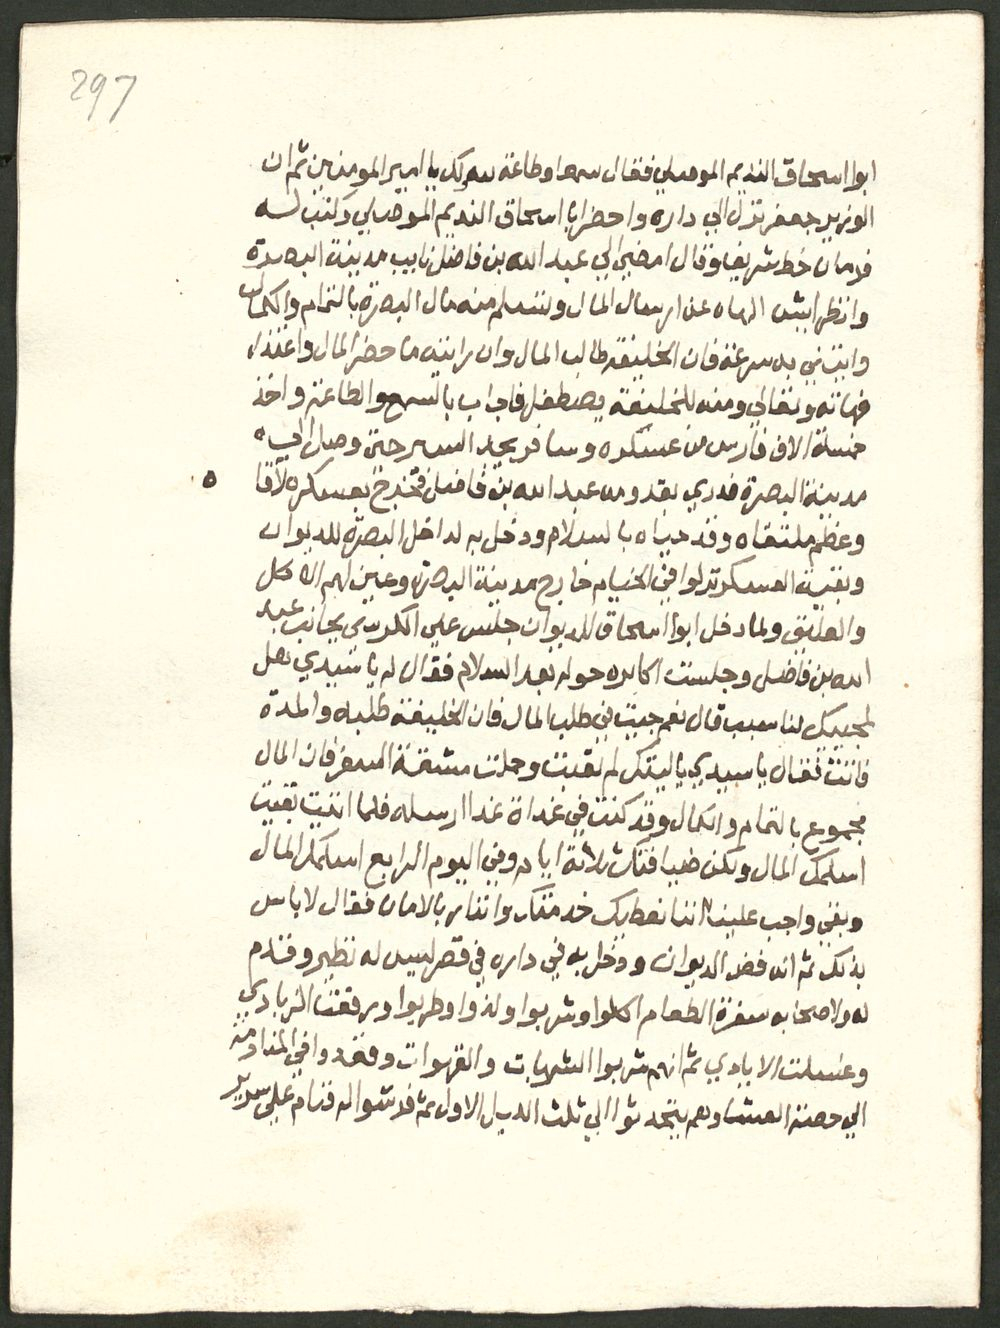 297
ابوا اسحاق النديم الموصلي فقال سمعا وطاعة لله ولك يا امير المومنين ثم ان
الوزير جعفر نزل الي داره واحضر ابا اسحاق النديم الموصلي وكتب له
فرمان خط شريف وقال امضي الي عبد الله بن فاضل نايب مدينة البصرة
وانظر ايش الهاه عن ارسال المال وتتسلم منه مال البصرة بالتمام والكمال
وايتيني به سرعة فان الخليفة طالب المال وان رايته ما حضر المال واعتذر
فهاته وتعالي ومنه للخليفة يصطفل فاجاب بالسمع والطاعة واخذ
خمسة الاف فارس من عسكره وسافر يجد السير حتي وصل الي
مدينة البصرة فدري بقدومه عبد الله بن فاضل فخرج بعسكره لاقا
وعظم ملتقاه وقد حياه بالسلام ودخل به لداخل البصرة للديوان
وبقية العسكر نزلوا في الخيام خارج مدينة البصرة وعين لهم الاكل
والعليق ولما دخل ابوا اسحاق للديوان جلس علي الكرسي بجانب عبد
الله بن فاضل وجلست اكابره حوله بعد السلام فقال له يا سيدي هل
لمجييك لنا سبب قال نعم جييت في طلب المال فان الخليفة طلبه والمدة
فاتت فقال يا سيدي يا ليتك لم تعبت وحملت مشقة السفر فان المال
مجموع بالتمام والكمال وقد كنت في غداة غدا ارسله فلما اتيت بقيت
اسلمك المال ولكن ضيافتك ثلاثة ايام وفي اليوم الرابع اسلمك المال
وبقي واجب علينا اننا نعطيك خدمتك واننا بالامان فقال لا باس
بذلك ثم انه فض الديوان ودخل به في داره في قصر ليس له نظير وقدم
له ولاصحابه سفرة الطعام اكلوا وشربوا ولذوا وطربوا ورفعت الزبادي
وغسلت الايادي ثم انهم شربوا الشربات والقهوات وقعدوا في المنادمة
الي حصة العشا وهم يتحدثوا الي ثلث الليل الاول ثم فرشوا له فنام علي سرير